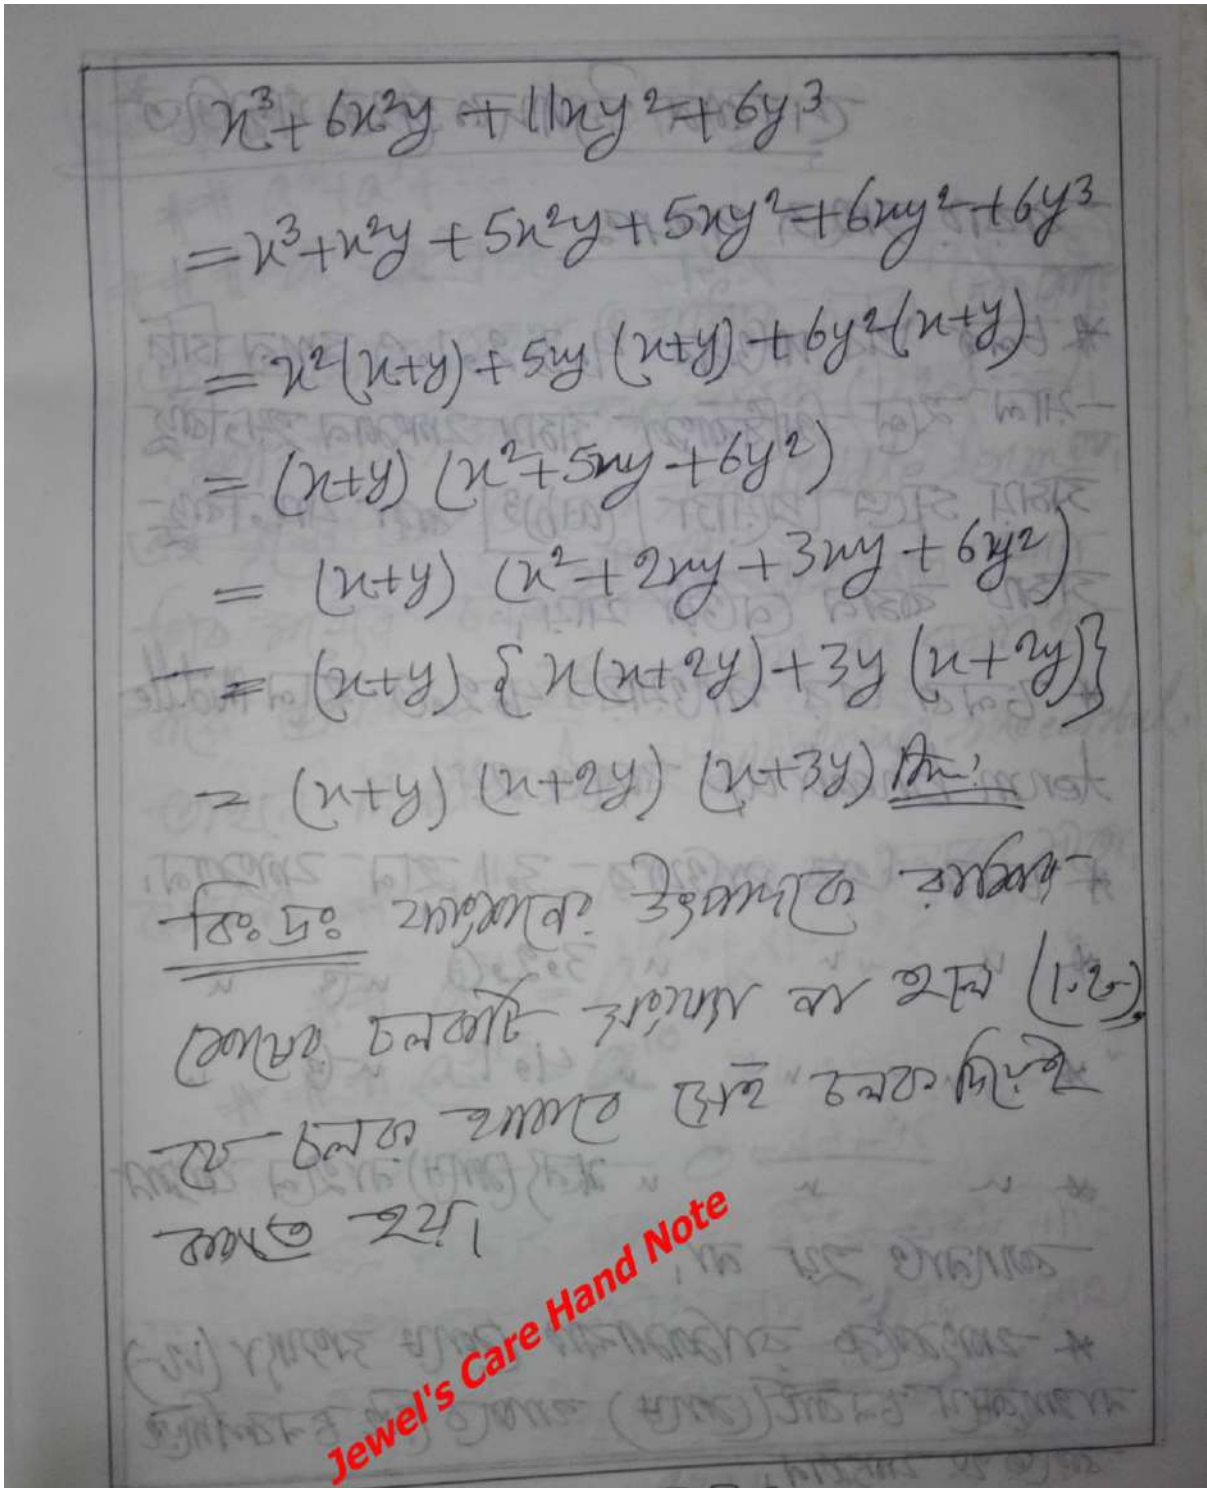 x³ + 6x²y + 11xy² + 6y³
= x³ + x²y + 5x²y + 5xy² + 6xy² + 6y³
= x²(x+y) + 5xy (x+y) + 6y²(x+y)
= (x+y) (x² + 5xy + 6y²)
= (x+y) (x² + 2xy + 3xy + 6y²)
= (x+y) {x(x+2y) + 3y (x+2y)}
= (x+y) (x+2y) (x+3y) Ans:
বিঃদ্রঃ উৎপাদকে
চলকটি না হলে
যে চলক থাকবে সেই চলক দিয়েই
করতে হয়।
Jewel's Care Hand Note